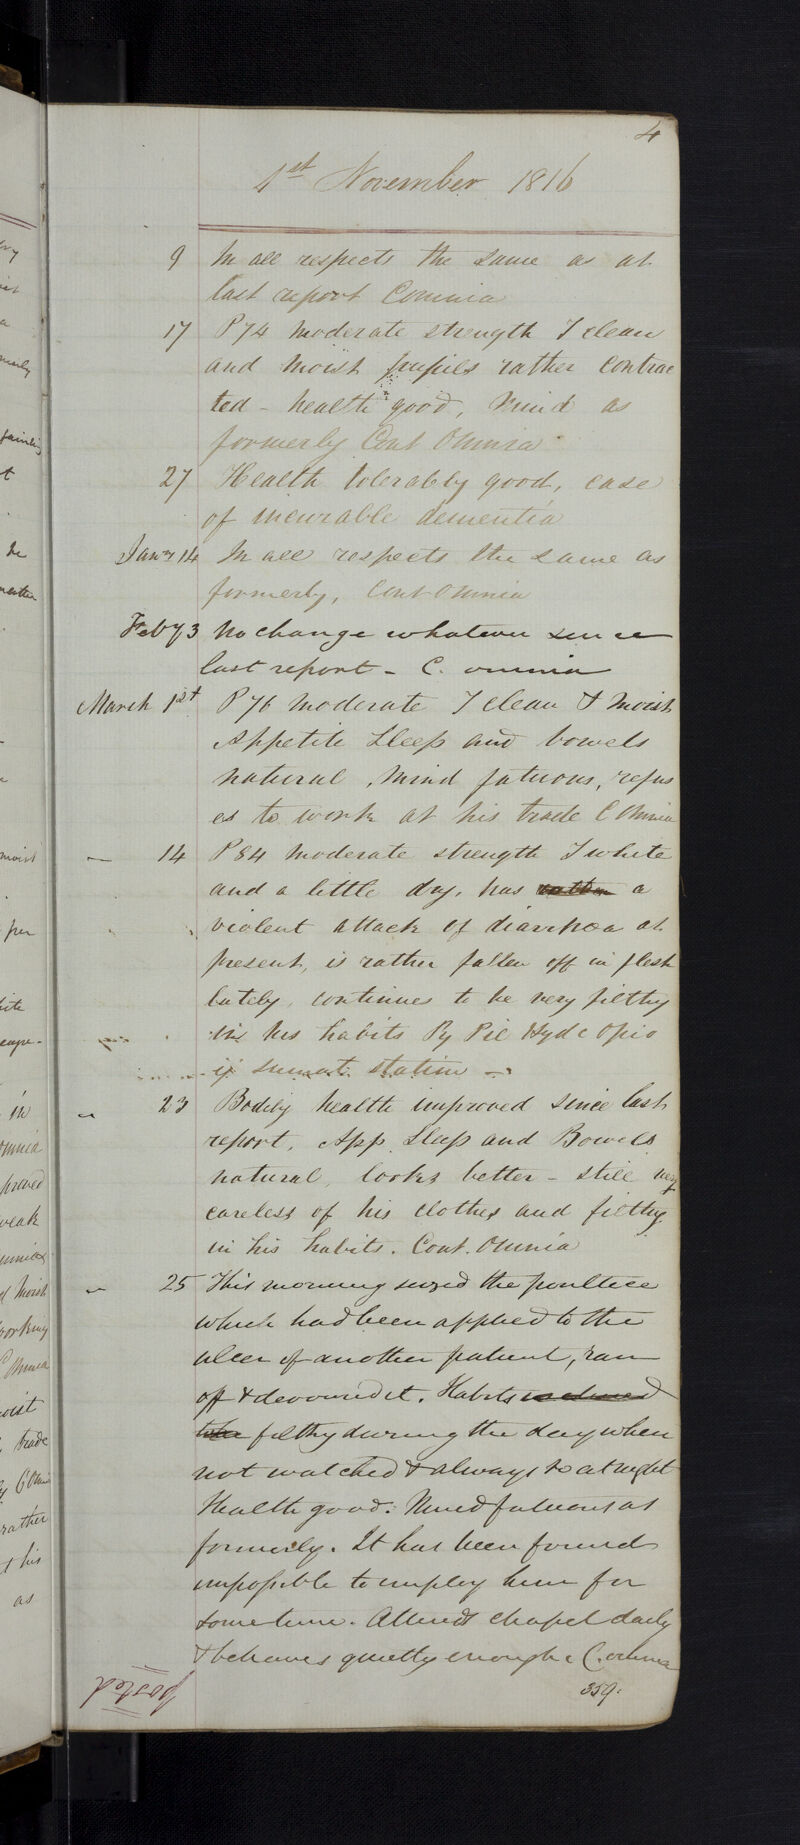 4
1st November 1816
9 In all respects the same as at
last report C omnia
17 P 74 moderate strength T clean
and moist pupils rather contrac
ted - health good, Mind as
formerly Cont Omnia
27 Health tolerably good, case
of incurable dementia
Jany 14 In all respects the same as
formerly, Cont Omnia
Feby 3 No change whatever since
last report - C. omnia
March 1st P 76 moderate T clean & moist
Appetite Sleep and bowels
natural, Mind fatuous, refus
es to work at his trade C Omnia
" 14 P 84 moderate strength T white
and a little dry, has rather a
violent attack of diarrhoea at
present, is rather fallen off in flesh
lately, continues to be very filthy
in his habits Rx Pil Hyd c Opio
ij sumat statim -
" 23 Bodily health improved since last
report, App Sleep and Bowels
natural, looks better - still very
careless of his clothes and filthy
in his habits. Cont. Omnia
" 25 This morning seized the poultice
which had been applied to the
ulcer of another patient, ran
off & devoured it. Habits
filthy during the day when
not watched & always so at night
Health good. Mind fatuous as
formerly. It has been found
impossible to employ him for
some time. Attends chapel daily
& behaves quietly enough C. omnia
359.
posted